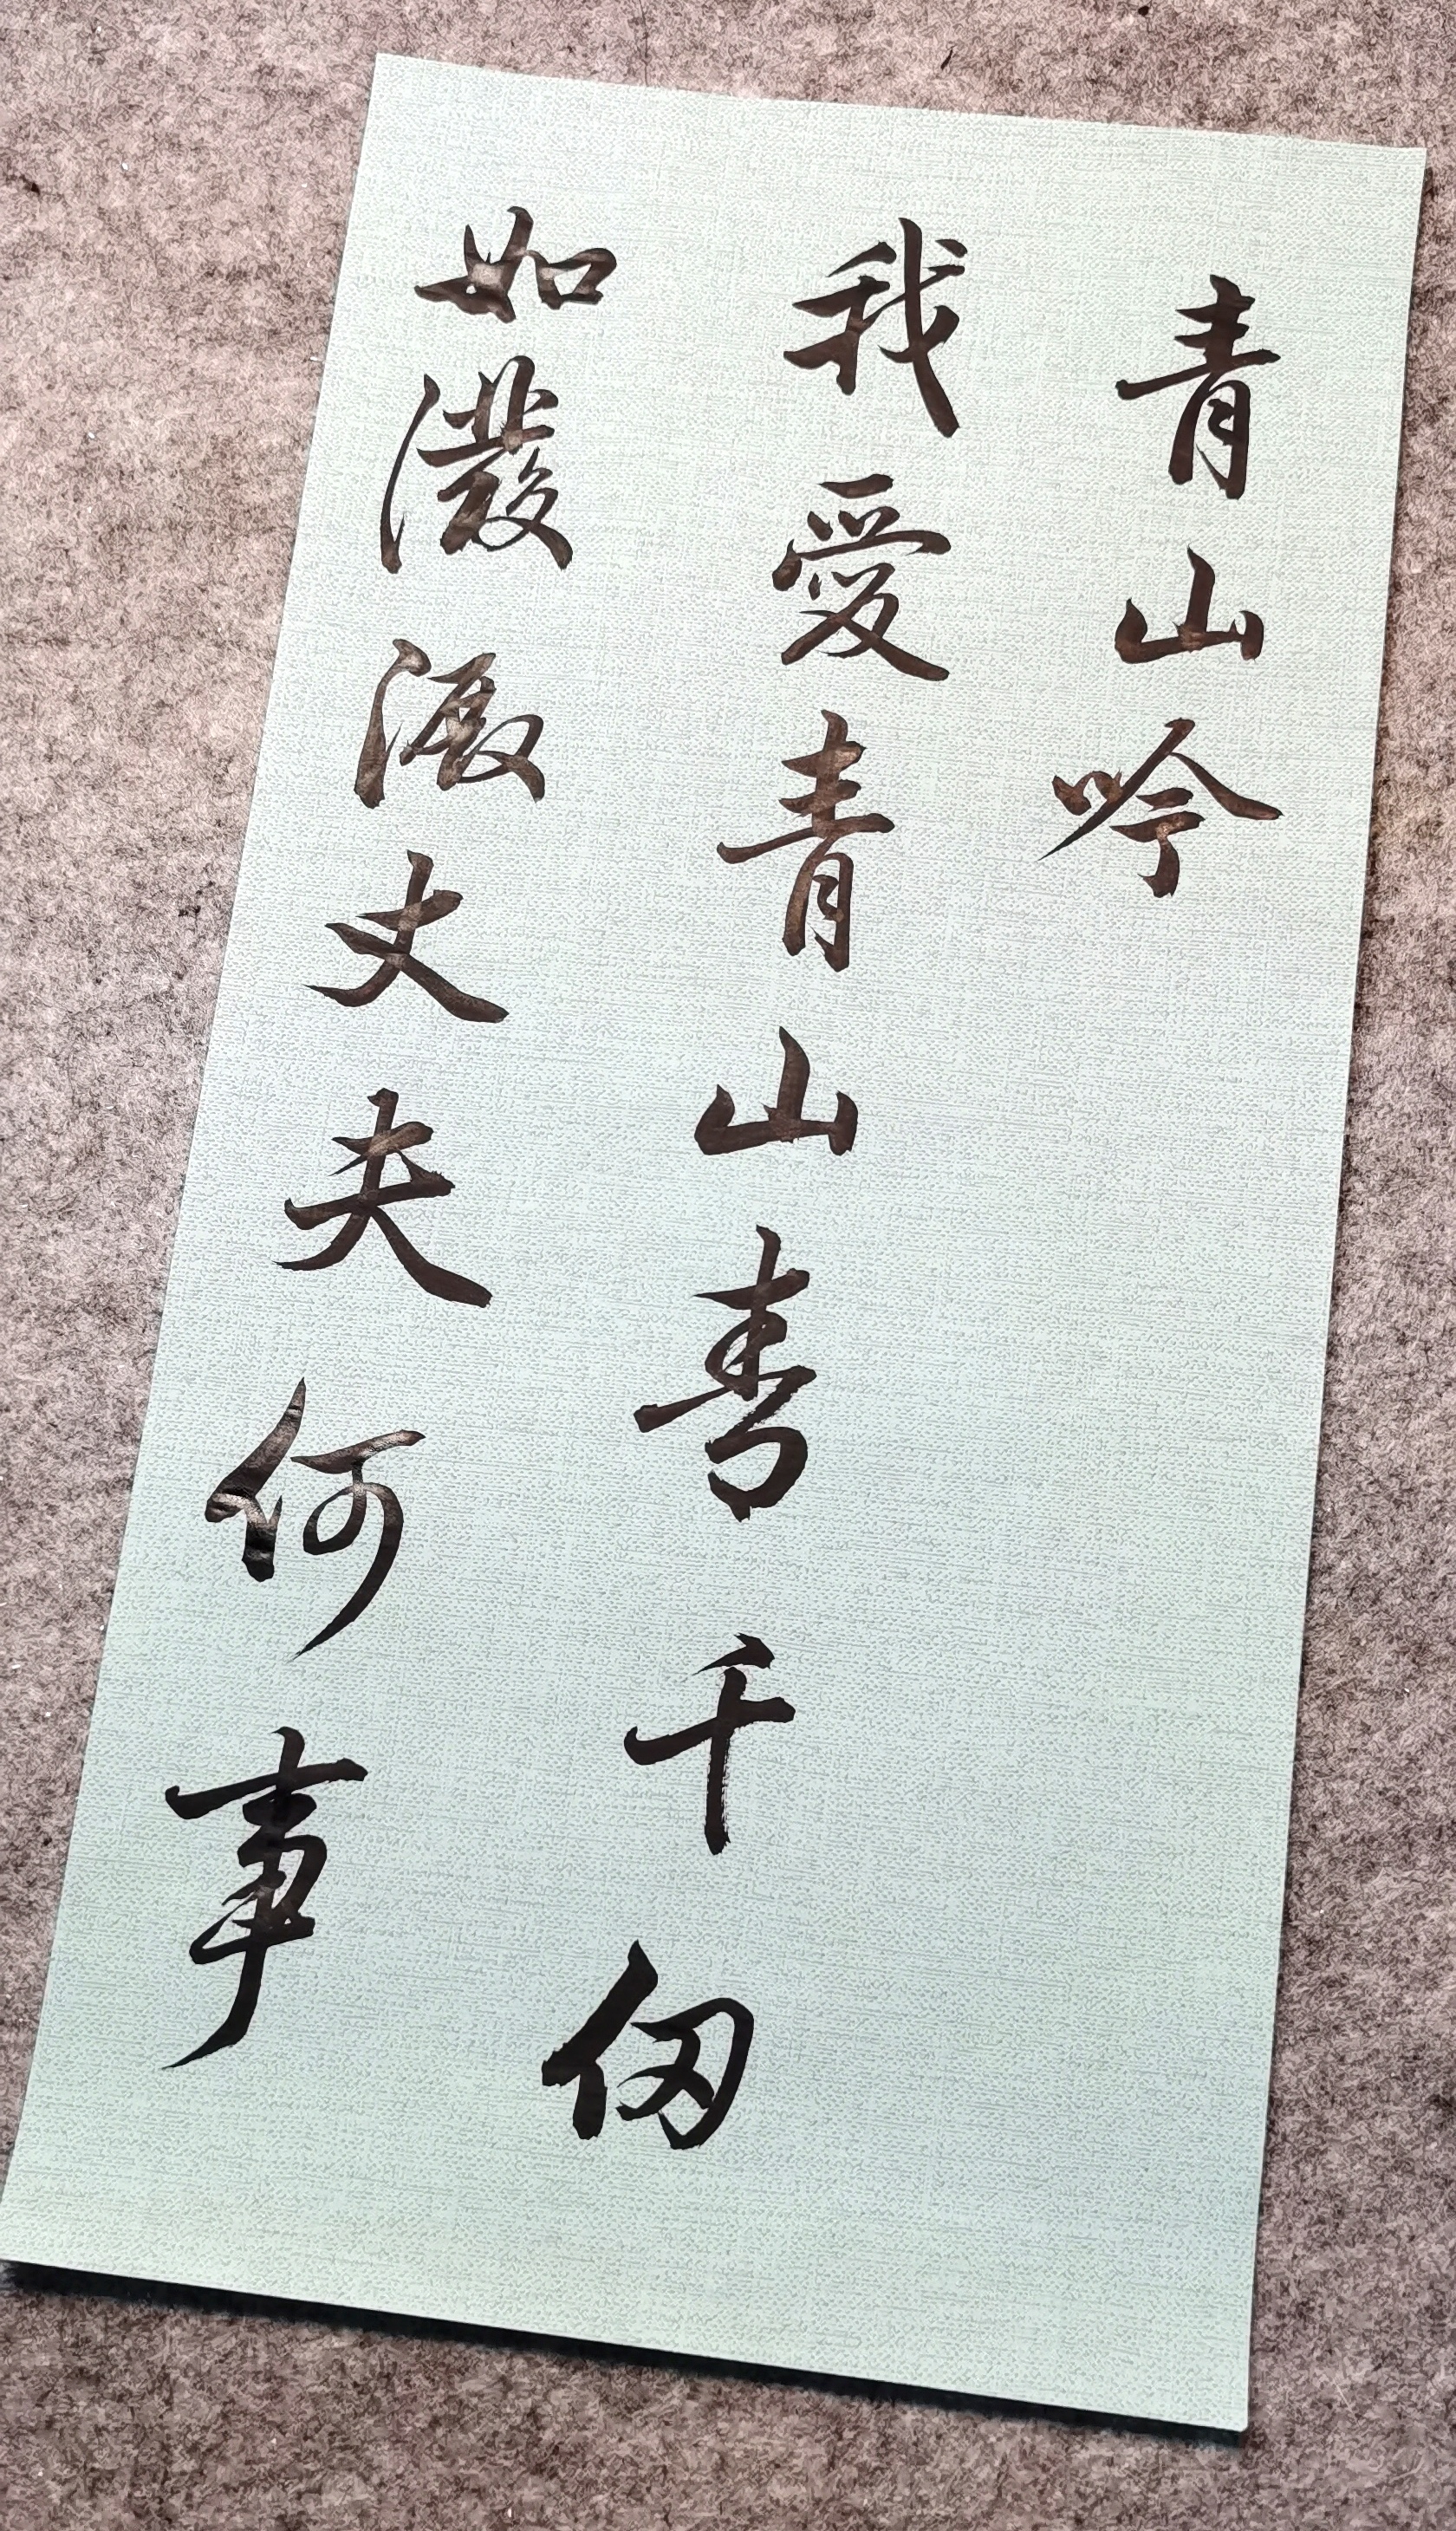 青山吟
我愛青山青千仞
如潑丈夫何事